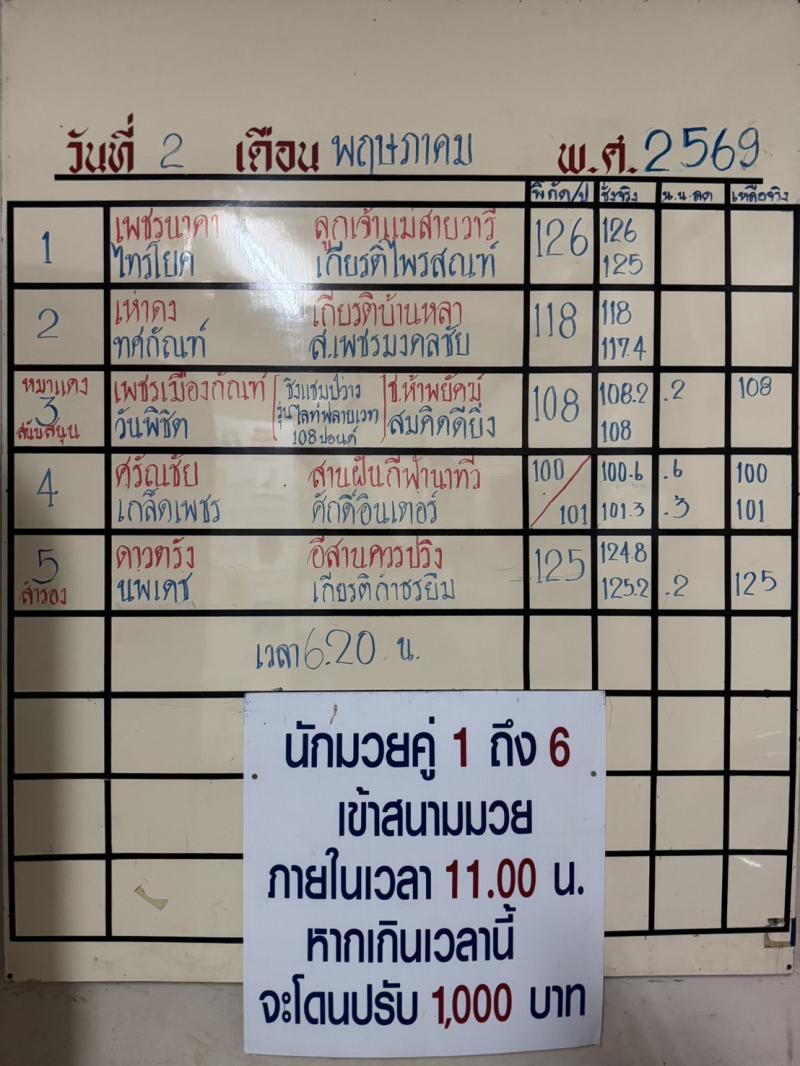 วันที่ 2 เดือน พฤษภาคม พ.ศ. 2569
พิกัด/ป ชั่งจริง น.น.ลด เหลือจริง
1 เพชรนาคา ลูกเจ้าแม่สายวารี 126 126
ไทรโยค เกียรติไพรสณฑ์ 125
2 เห่าดง เกียรติบ้านหลา 118 118
ทศกัณฑ์ ส.เพชรมงคลชัย 117.4
หมาแดง 3 สนับสนุน
เพชรเมืองกัณฑ์ ช.ห้าพยัคฆ์ 108 108.2 .2 108
วันพิชิต สมคิดดียิ่ง 108
ชิงแชมป์ว่าง
รุ่นไลท์ฟลายเวท
108 ปอนด์
4 ศรัณชัย สานฝันกีฬานาทวี 100 100.6 .6 100
เกล็ดเพชร ศักดิ์อินเตอร์ / 101 101.3 .3 101
5 ดาวตรัง อีสานควรปริง 125 124.8
สำรอง นพเดช เกียรติกำธรยิม 125.2 .2 125
เวลา 6.20 น.
นักมวยคู่ 1 ถึง 6
เข้าสนามมวย
ภายในเวลา 11.00 น.
หากเกินเวลานี้
จะโดนปรับ 1,000 บาท